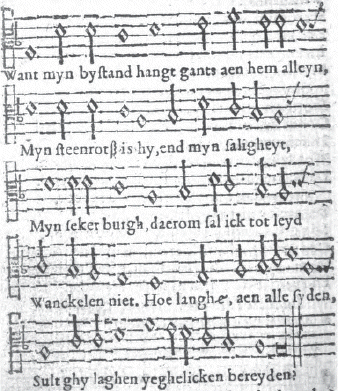 Want myn bystand hangt gants aen hem alleyn,
Myn steenrotß is hy, end myn saligheyt,
Myn seker burgh, daerom sal ick tot leyd
Wanckelen niet. Hoe langhe, aen alle syden,
Sult ghy laghen yeghelicken bereyden?